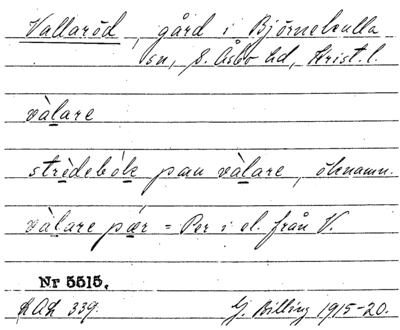 Vallaröd, gård i Björnekulla
sn, S. Åsbo hd, Krist. l.
vàlare
strèdebók pau vàlare, öknamn.
vàlare pær = Per i el. från V.
Nr 5515.
LAL 339.
G. Billing 1915-20.